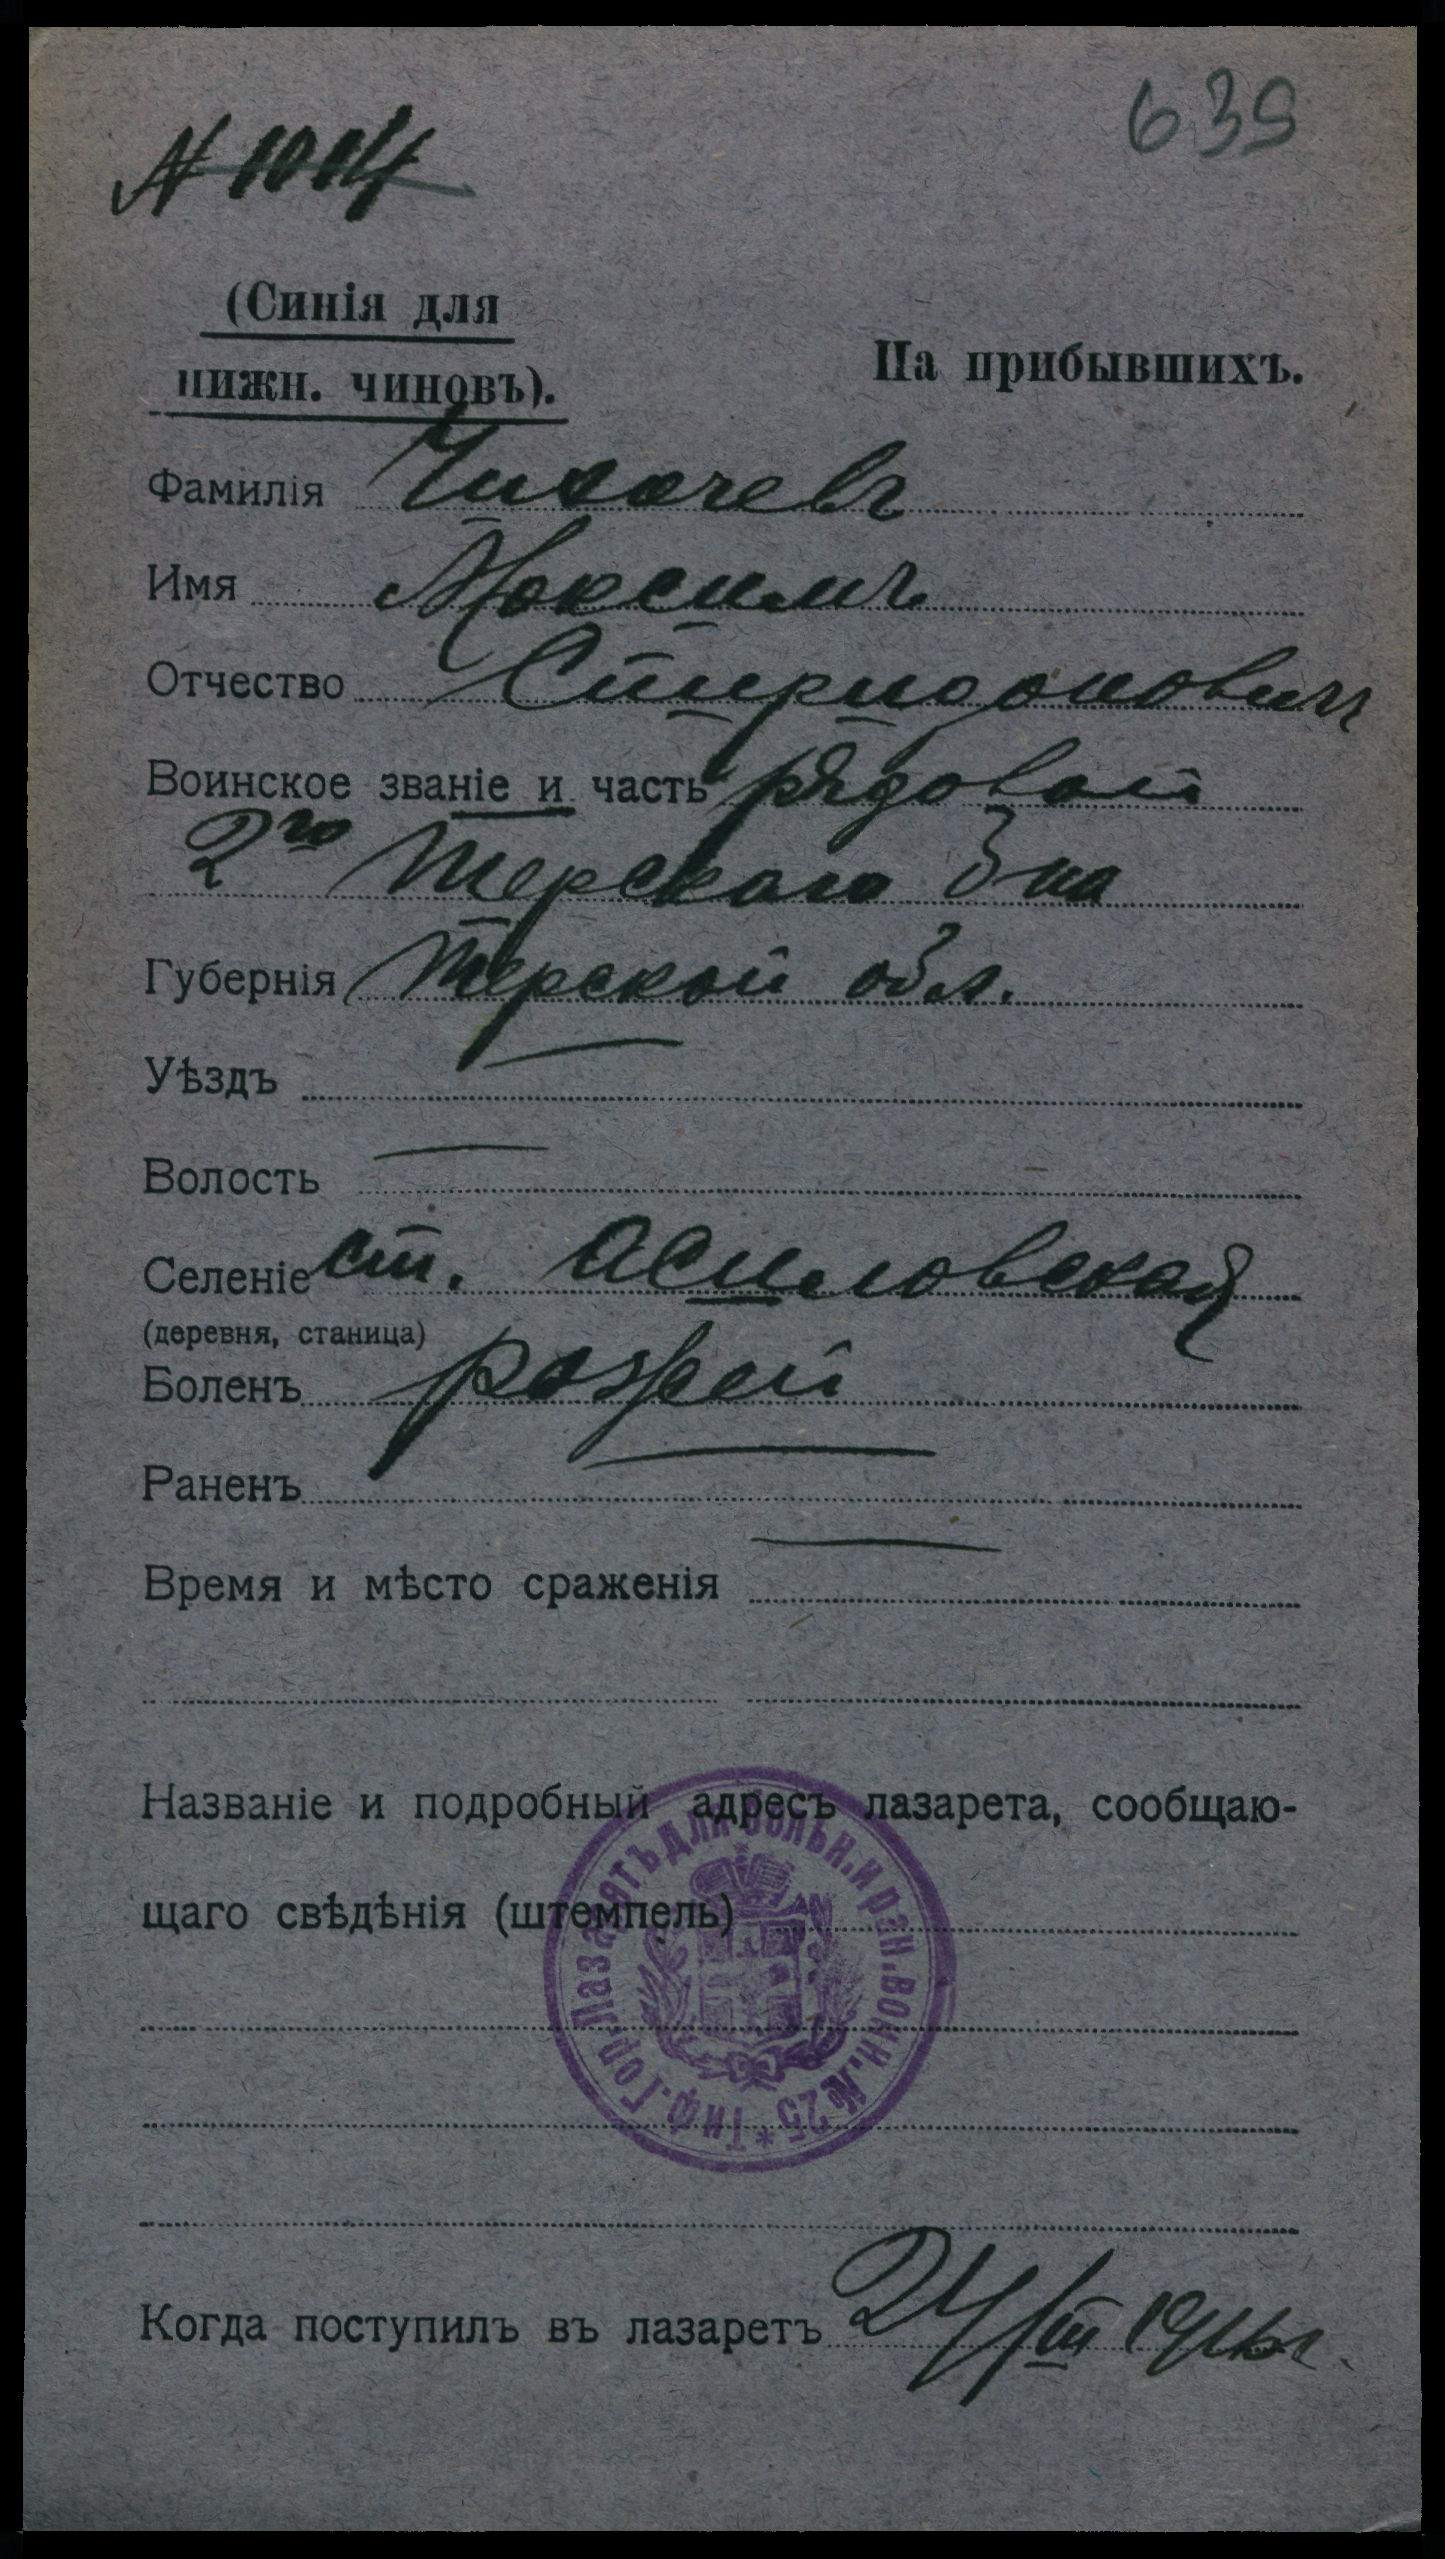 639
№ 1014
(Синія для
нижн. чиновъ).
На прибывшихъ.
Фамилія Чихачевъ
Имя Максимъ
Отчество Спиридоновичъ
Воинское званіе и часть рядовой
2го Терскаго
Губернія Терской обл.
Уѣздъ —
Волость —
Селеніе ст. Асиновская
(деревня, станица)
Боленъ рожей
Раненъ —
Время и мѣсто сраженія —
Названіе и подробный адресъ лазарета, сообщаю-
щаго свѣдѣнія (штемпель)
Тиф. Гор. Лазаятъ для больн. и ран. воин. № 25 *
Когда поступилъ въ лазаретъ 24/III 1916 г.